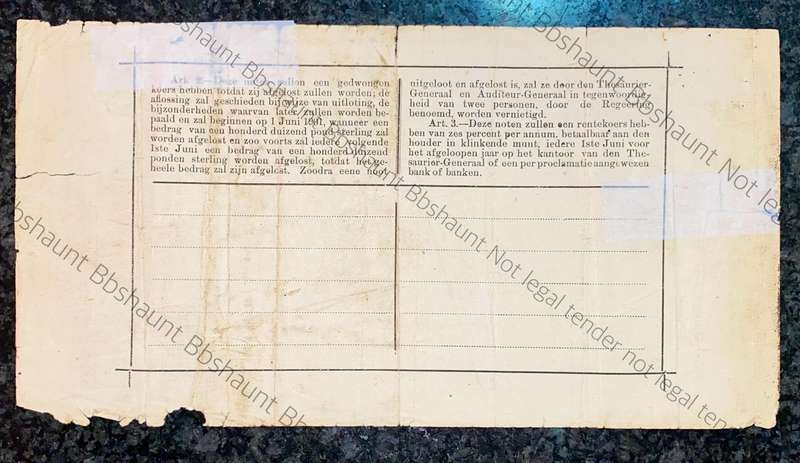 Art. 2.—Deze noten zullen een gedwongen
koers hebben totdat zij afgelost zullen worden; de
aflossing zal geschieden bij wijze van uitloting, de
bijzonderheden waarvan later zullen worden be-
paald en zal beginnen op 1 Juni 1901, wanneer een
bedrag van een honderd duizend pond sterling zal
worden afgelost en zoo voorts zal iedere volgende
1ste Juni een bedrag van een honderd duizend
ponden sterling worden afgelost, totdat het ge-
heele bedrag zal zijn afgelost. Zoodra eene noot
uitgeloot en afgelost is, zal ze door den Thesaurier-
Generaal en Auditeur-Generaal in tegenwoordig-
heid van twee personen, door de Regeering
benoemd, worden vernietigd.
Art. 3.—Deze noten zullen een rentekoers heb-
ben van zes percent per annum, betaalbaar aan den
houder in klinkende munt, iedere 1ste Juni voor
het afgeloopen jaar op het kantoor van den The-
saurier-Generaal of een per proclamatie aangewezen
bank of banken.
Bbshaunt Bbshaunt Not legal tender not legal
Bbshaunt Bbshaunt Bbshaunt Not legal tender not legal ten
Bbshaunt Bbshaunt Bbshaunt Bb